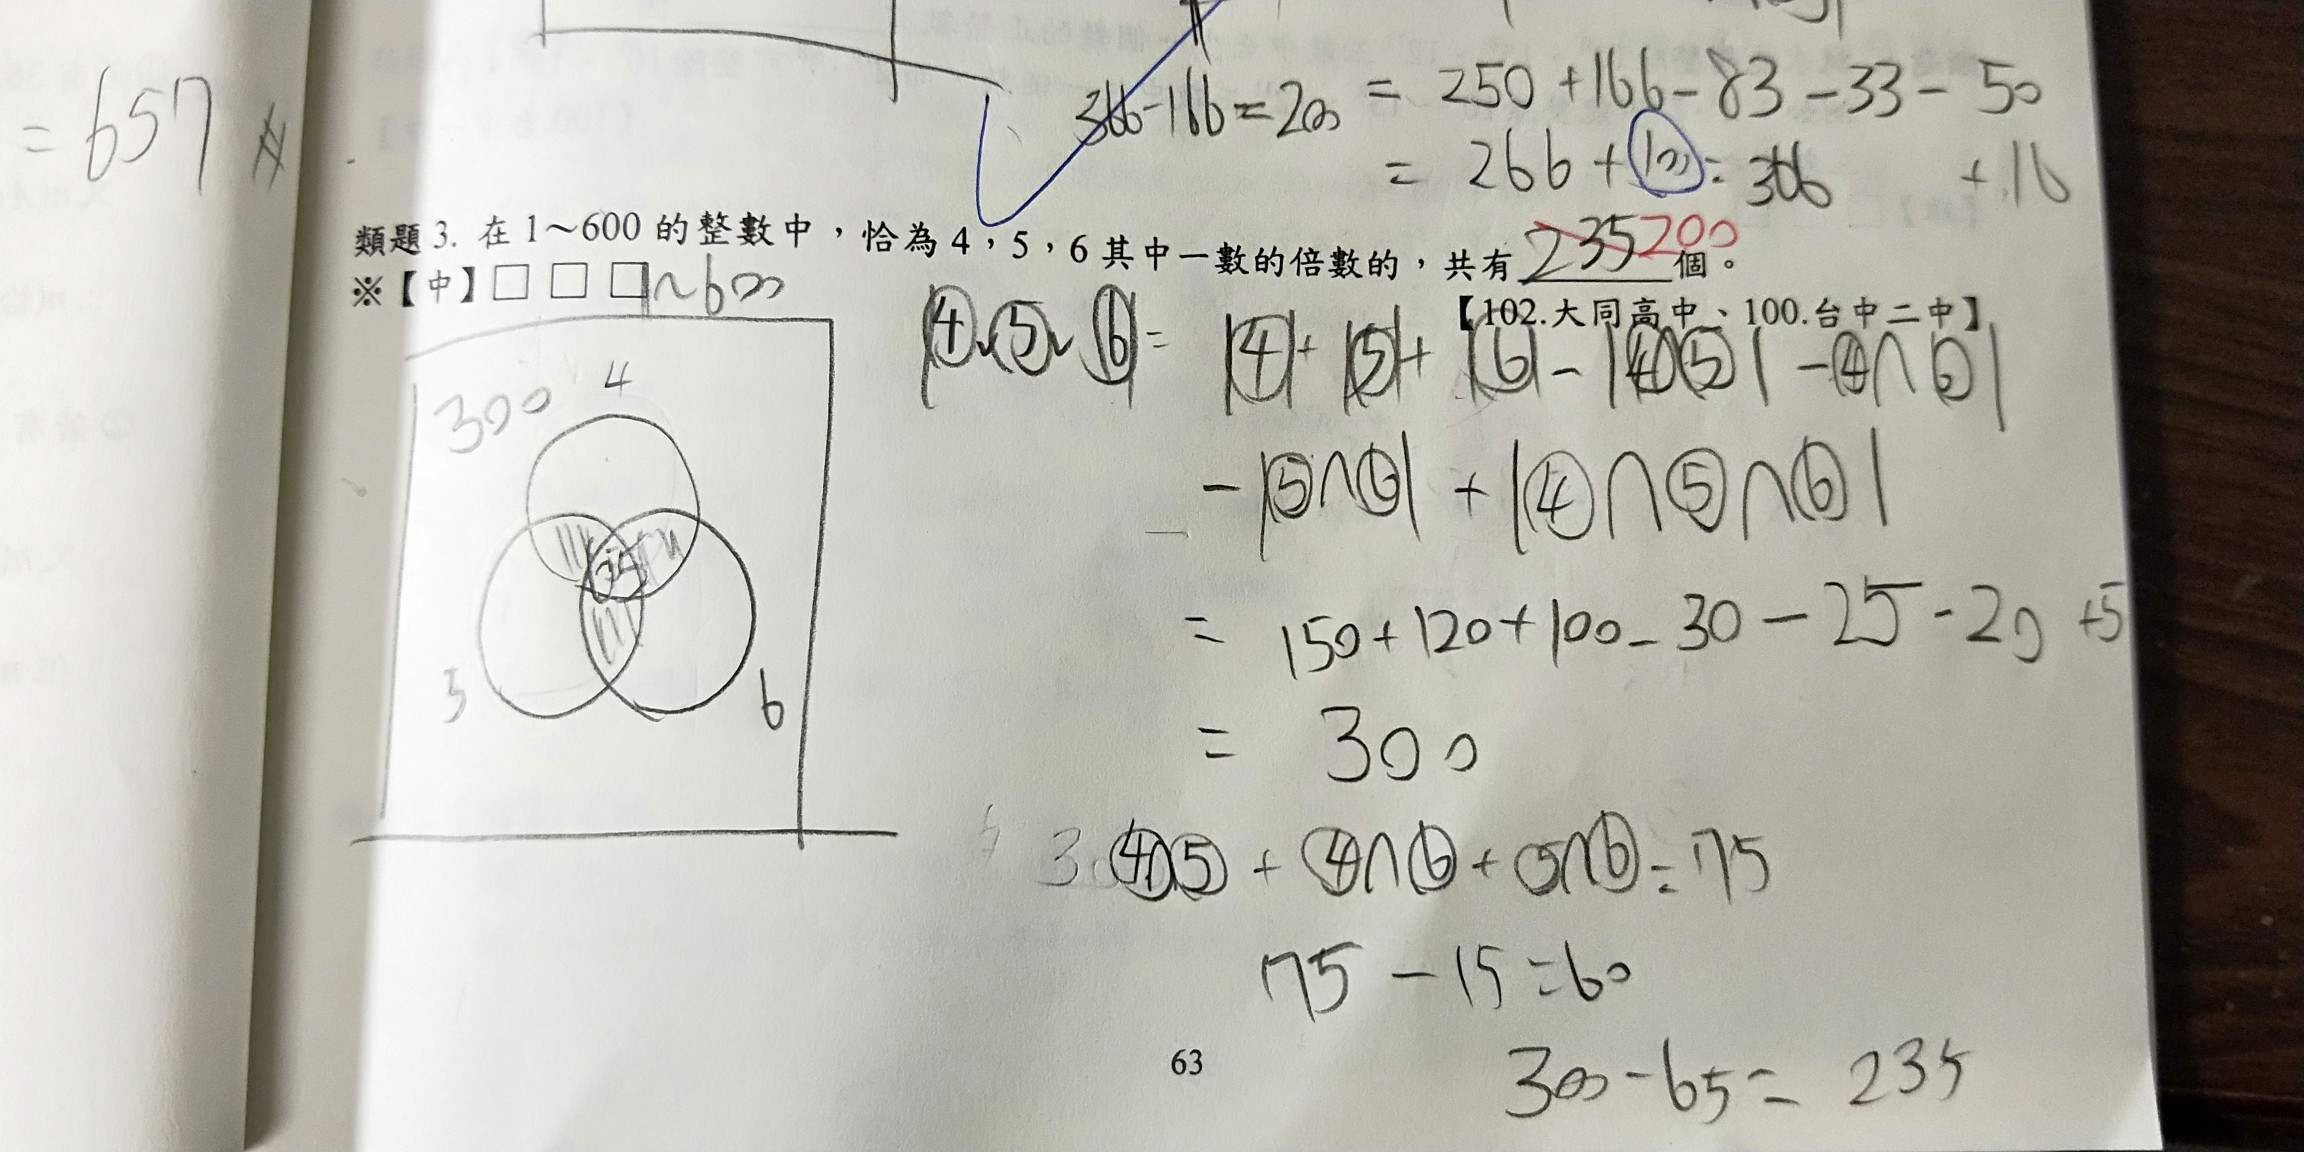 = 657
366-166=200
= 250 +166-83-33-50
+16
= 266 + 100 = 366
類題 3. 在 1～600 的整數中，恰為 4，5，6 其中一數的倍數的，共有 235 200 個。
※【中】□ □ □ 1~600
【102.大同高中、100.台中二中】
|④∪⑤∪⑥| = |④|+|⑤|+|⑥|-|④∩⑤|-④∩⑥|
-|⑤∩⑥| + |④∩⑤∩⑥|
300
4
5
6
= 150+120+100-30-25-20 +5
= 300
④∩⑤ + ④∩⑥ + ⑤∩⑥ = 75
75-15=60
300-65= 235
63